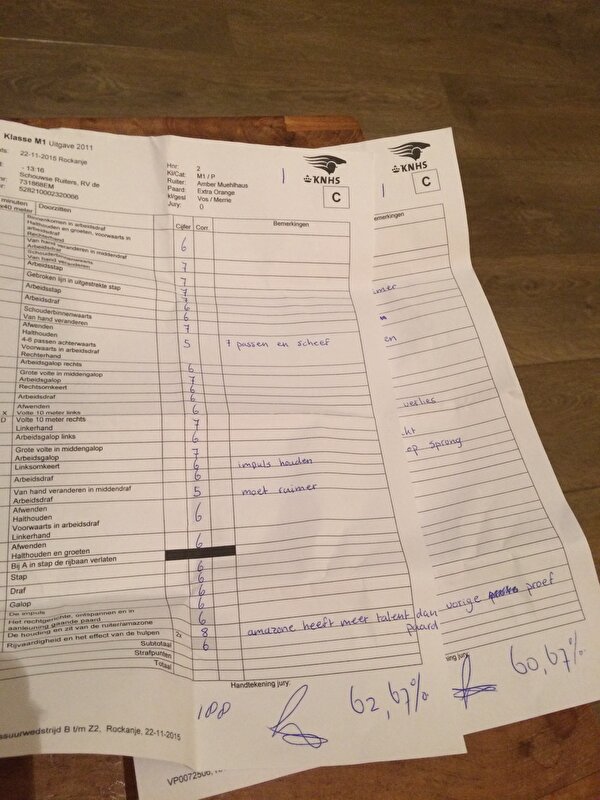 Klasse M1 Uitgave 2011
22-11-2015 Rockanje
- 13:16
Schouwse Ruiters, RV de
731868EM
528210002320066
Hnr: 2
Kl/Cat: M1 / P
Ruiter: Amber Muehlhaus
Paard: Extra Orange
kl/gesl Vos / Merrie
Jury: ()
1
KNHS
C
minuten
x40 meter
Doorzitten
Cijfer Corr. Bemerkingen
Binnenkomen in arbeidsdraf
Halthouden en groeten, voorwaarts in
arbeidsdraf
Rechterhand 6
Van hand veranderen in middendraf
Arbeidsdraf 7
Schouderbinnenwaarts
Van hand veranderen
Arbeidsstap 7
Gebroken lijn in uitgestrekte stap 7
Arbeidsstap
Arbeidsdraf 6
Schouderbinnenwaarts 6
Van hand veranderen 7
Afwenden
Halthouden
4-6 passen achterwaarts 5 7 passen en scheef
Voorwaarts in arbeidsdraf
Rechterhand
Arbeidsgalop rechts 6
Grote volte in middengalop
Arbeidsgalop 7
Rechtsomkeert 6
Arbeidsdraf 6
Afwenden
X Volte 10 meter links 6
D Volte 10 meter rechts 7
Linkerhand
Arbeidsgalop links 6
Grote volte in middengalop
Arbeidsgalop 7
Linksomkeert 6 impuls houden
Arbeidsdraf 6
Van hand veranderen in middendraf 5 moet ruimer
Arbeidsdraf
Afwenden
Halthouden 6
Voorwaarts in arbeidsdraf
Linkerhand
Afwenden 6
Halthouden en groeten
Bij A in stap de rijbaan verlaten
Stap 6
Draf 6
Galop 6
De impuls 6
Het rechtgerichte, ontspannen en in
aanleuning gaande paard 6
De houding en zit van de ruiter/amazone 2x 8 amazone heeft meer talent dan paard
Rijvaardigheid en het effect van de hulpen 6
Subtotaal
Strafpunten
Totaal
188
Handtekening jury.
62,67%
ssuurwedstrijd B t/m Z2, Rockanje, 22-11-2015
1
KNHS
C
merkingen
en
verlies
op sprong
vorige proef
ning jury.
60,67%